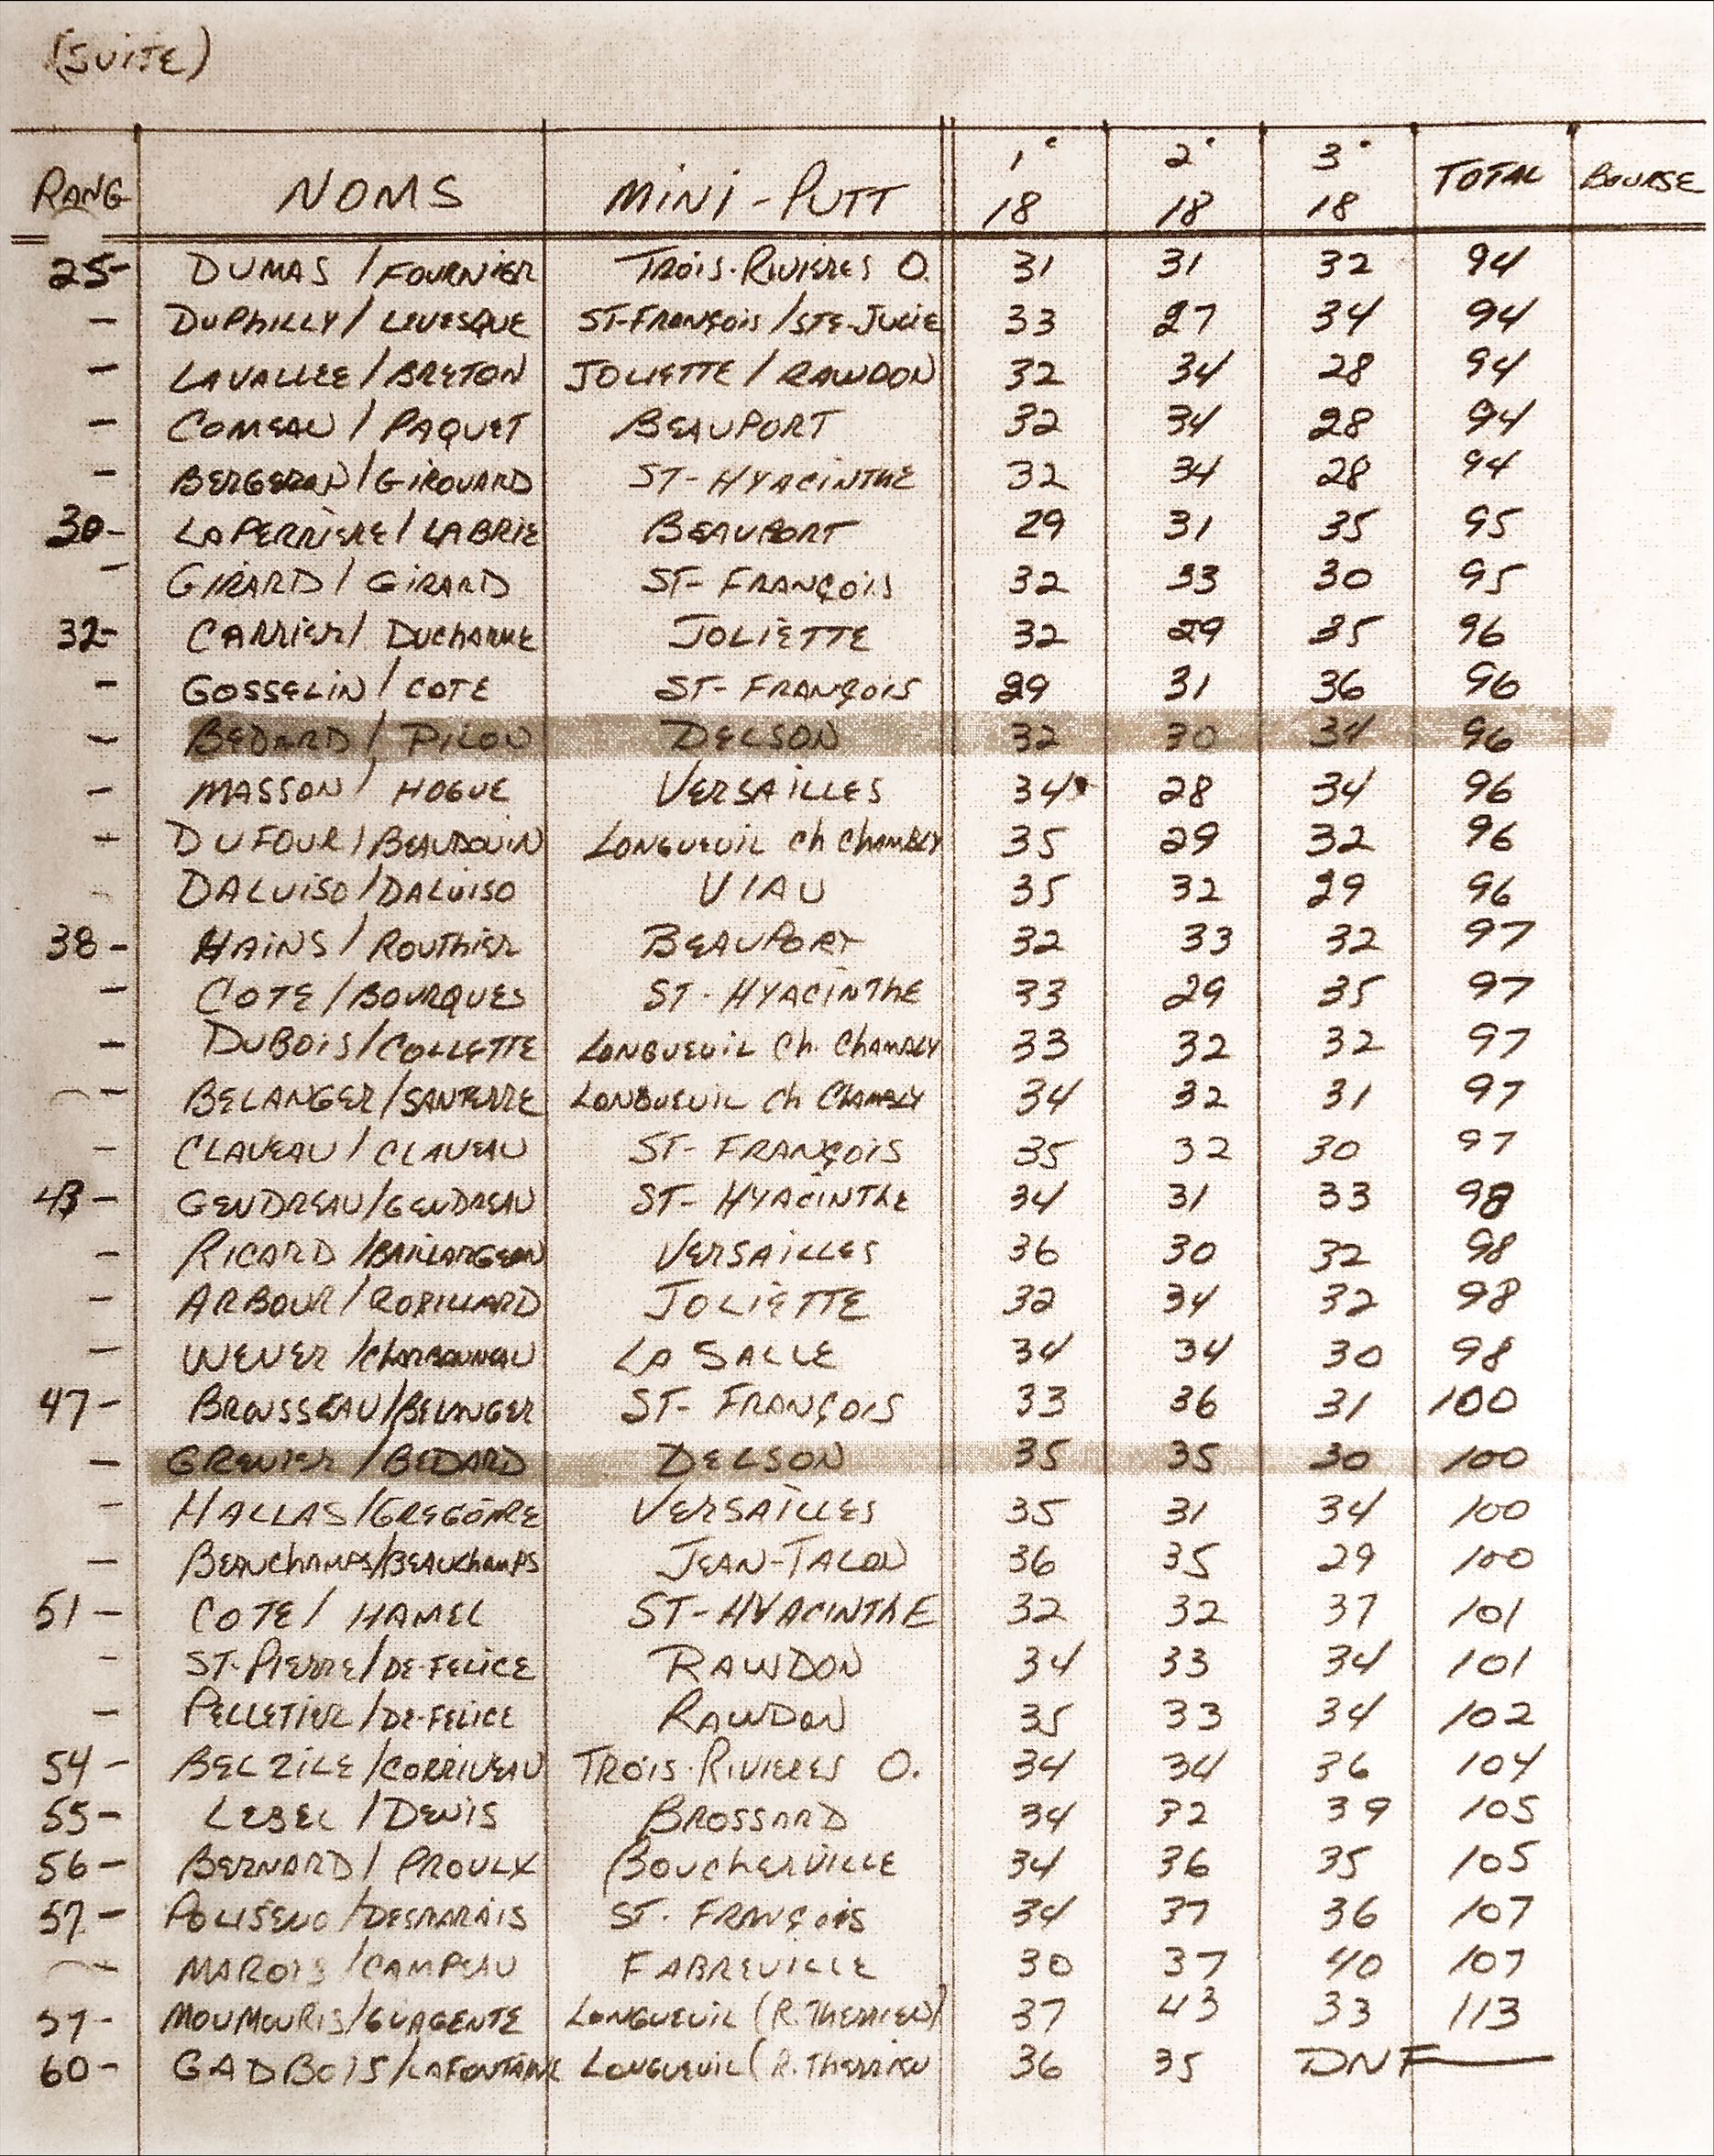 (SUITE)
RANG NOMS MINI-PUTT 1e 18 2e 18 3e 18 TOTAL BOURSE
25- DUMAS / FOURNIER TROIS-RIVIERES O. 31 31 32 94
- DUPHILLY / LEVESQUE ST-FRANÇOIS / STE-JULIE 33 27 34 94
- LAVALLEE / BRETON JOLIETTE / RAWDON 32 34 28 94
- COMEAU / PAQUET BEAUPORT 32 34 28 94
- BERGERON / GIROUARD ST-HYACINTHE 32 34 28 94
30- LAPERRIERE / LABRIE BEAUPORT 29 31 35 95
- GIRARD / GIRARD ST-FRANÇOIS 32 33 30 95
32- CARRIER / DUCHARME JOLIETTE 32 29 35 96
- GOSSELIN / COTE ST-FRANÇOIS 29 31 36 96
- BEDARD / PILON DELSON 32 30 34 96
- MASSON / HOGUE VERSAILLES 34 28 34 96
- DUFOUR / BEAUDOUIN LONGUEUIL Ch CHAMBLY 35 29 32 96
- DALUISO / DALUISO VIAU 35 32 29 96
38- HAINS / ROUTHIER BEAUPORT 32 33 32 97
- COTE / BOURQUES ST-HYACINTHE 33 29 35 97
- DUBOIS / COLLETTE LONGUEUIL Ch. CHAMBLY 33 32 32 97
- BELANGER / SANTERRE LONGUEUIL Ch CHAMBLY 34 32 31 97
- CLAVEAU / CLAVEAU ST-FRANÇOIS 35 32 30 97
43- GENDREAU / GENDREAU ST-HYACINTHE 34 31 33 98
- RICARD / BAILLARGEON VERSAILLES 36 30 32 98
- ARBOUR / ROBILLARD JOLIETTE 32 34 32 98
- WEVER / CHARBONNEAU LA SALLE 34 34 30 98
47- BROUSSEAU / BELANGER ST-FRANÇOIS 33 36 31 100
- GRENIER / BEDARD DELSON 35 35 30 100
- HALLAS / GREGOIRE VERSAILLES 35 31 34 100
- BEAUCHAMPS / BEAUCHAMPS JEAN-TALON 36 35 29 100
51- COTE / HAMEL ST-HYACINTHE 32 32 37 101
- ST-PIERRE / DE-FELICE RAWDON 34 33 34 101
- PELLETIER / DE-FELICE RAWDON 35 33 34 102
54- BELZILE / CORRIVEAU TROIS-RIVIERES O. 34 34 36 104
55- LEBEL / DENIS BROSSARD 34 32 39 105
56- BERNARD / PROULX BOUCHERVILLE 34 36 35 105
57- POLISENO / DESMARAIS ST. FRANÇOIS 34 37 36 107
- MAROIS / CAMPEAU FABREVILLE 30 37 40 107
59- MOUMOURIS / GUAGENTE LONGUEUIL (R. THERRIEN) 37 43 33 113
60- GADBOIS / LAFONTAINE LONGUEUIL (R. THERRIEN 36 35 DNF